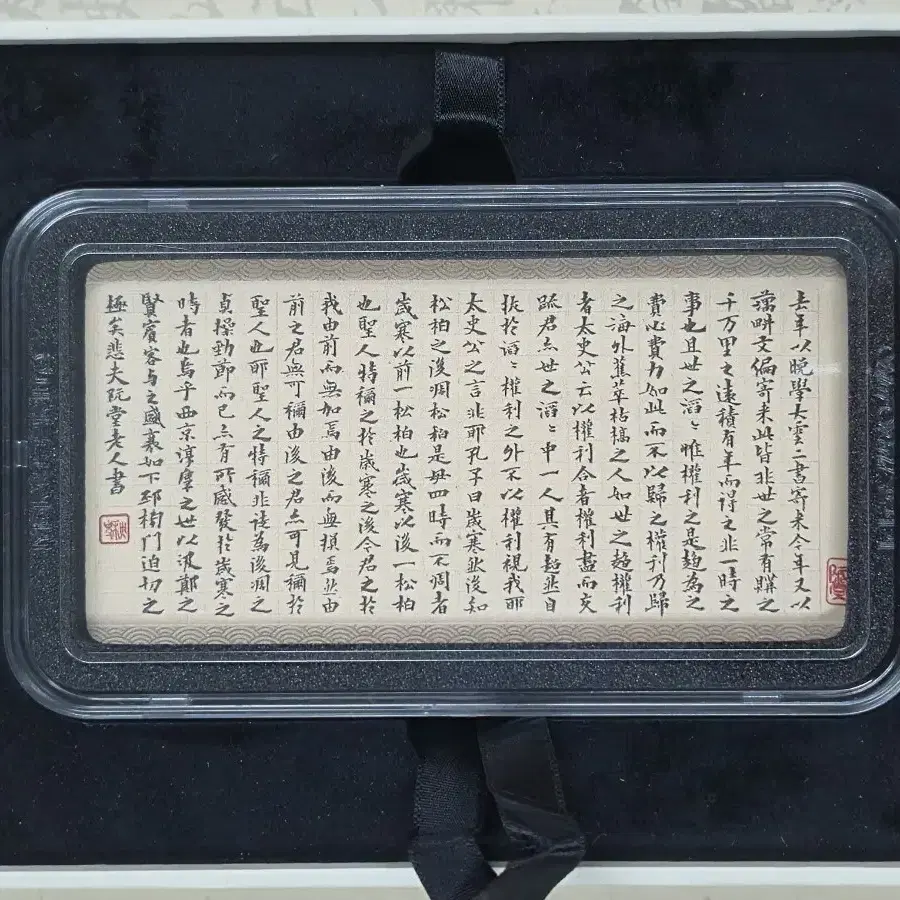 去年以晚學大雲二書寄来今年又以
藕畊文偏寄来此皆非世之常有購之
千万里之遠積有年而得之非一時之
事也且世之滔〻惟權利之是趨為之
費心費力如此而不以歸之權利乃歸
之海外蕉萃枯槁之人如世之趨權利
者太史公云以權利合者權利盡而交
疏君亦世之滔〻中一人其有超然自
拔於滔〻權利之外不以權利視我耶
太史公之言非耶孔子曰歲寒然後知
松柏之後凋松柏是毋四時而不凋者
歲寒以前一松柏也歲寒以後一松柏
也聖人特稱之於歲寒之後今君之於
我由前而無加焉由後而無損焉然由
前之君無可稱由後之君亦可見稱於
聖人也耶聖人之特稱非徒為後凋之
貞操勁節而已亦有所感發於歲寒之
時者也烏乎西京淳厚之世以汲鄭之
賢賓客与之盛衰如下邳榜門迫切之
極矣悲夫阮堂老人書